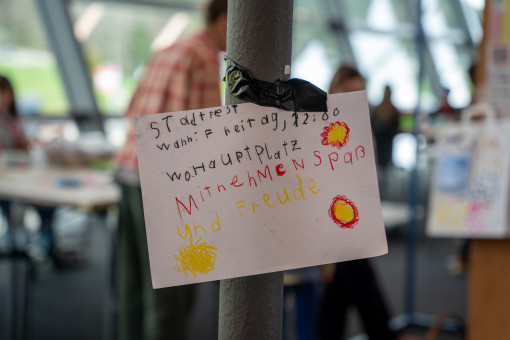 STadtfest
wann: Freitag, 12:00
wo Hauptplatz
MitnehMeN Spaß
und Freude